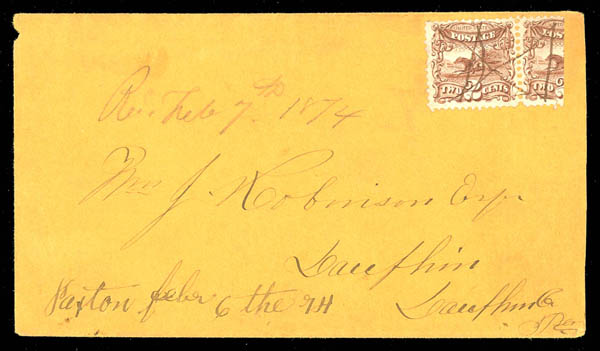 POSTAGE POSTAGE
TWO 2 CENTS TWO 2
Rec. Feb 7th 1874
Wm J. Robinson Esqr
Daufhin
Paxton febr 6 the 74 Daufhin Co
Pa